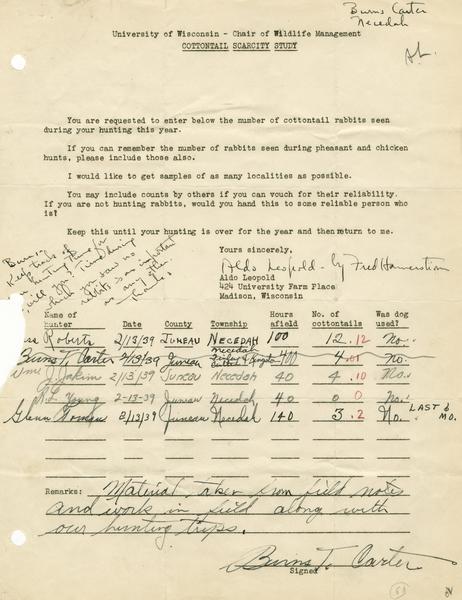 Burns Carter
Necedah
University of Wisconsin - Chair of Wildlife Management
COTTONTAIL SCARCITY STUDY
You are requested to enter below the number of cottontail rabbits seen
during your hunting this year.
If you can remember the number of rabbits seen during pheasant and chicken
hunts, please include those also.
I would like to get samples of as many localities as possible.
You may include counts by others if you can vouch for their reliability.
If you are not hunting rabbits, would you hand this to some reliable person who
is?
Keep this until your hunting is over for the year and then return to me.
Burns,
Keep track of
hunting time for
all types. Time during
which you saw no
rabbits is as important
as any other.
Yours sincerely,
Aldo Leopold - by Fred Hamerstrom
Aldo Leopold
424 University Farm Place
Madison, Wisconsin
Name of hunter Date County Township Hours afield No. of cottontails Was dog used?
Roberts 2/13/39 JUNEAU NECEDAH 100 12 .12 No.
Burns T. Carter 2/13/39 Juneau Necedah 400 4 .01 No.
J. Jakim 2/13/39 Juneau Necedah 40 4 .10 No.
Young 2-13-39 Juneau Necedah 40 0 0 No.
Glenn 2/13/39 Juneau Necedah 140 3 .2 No. LAST 2 MO.
Remarks: Material taken from field notes
and work in field along with
our hunting trips.
Burns T. Carter
Signed